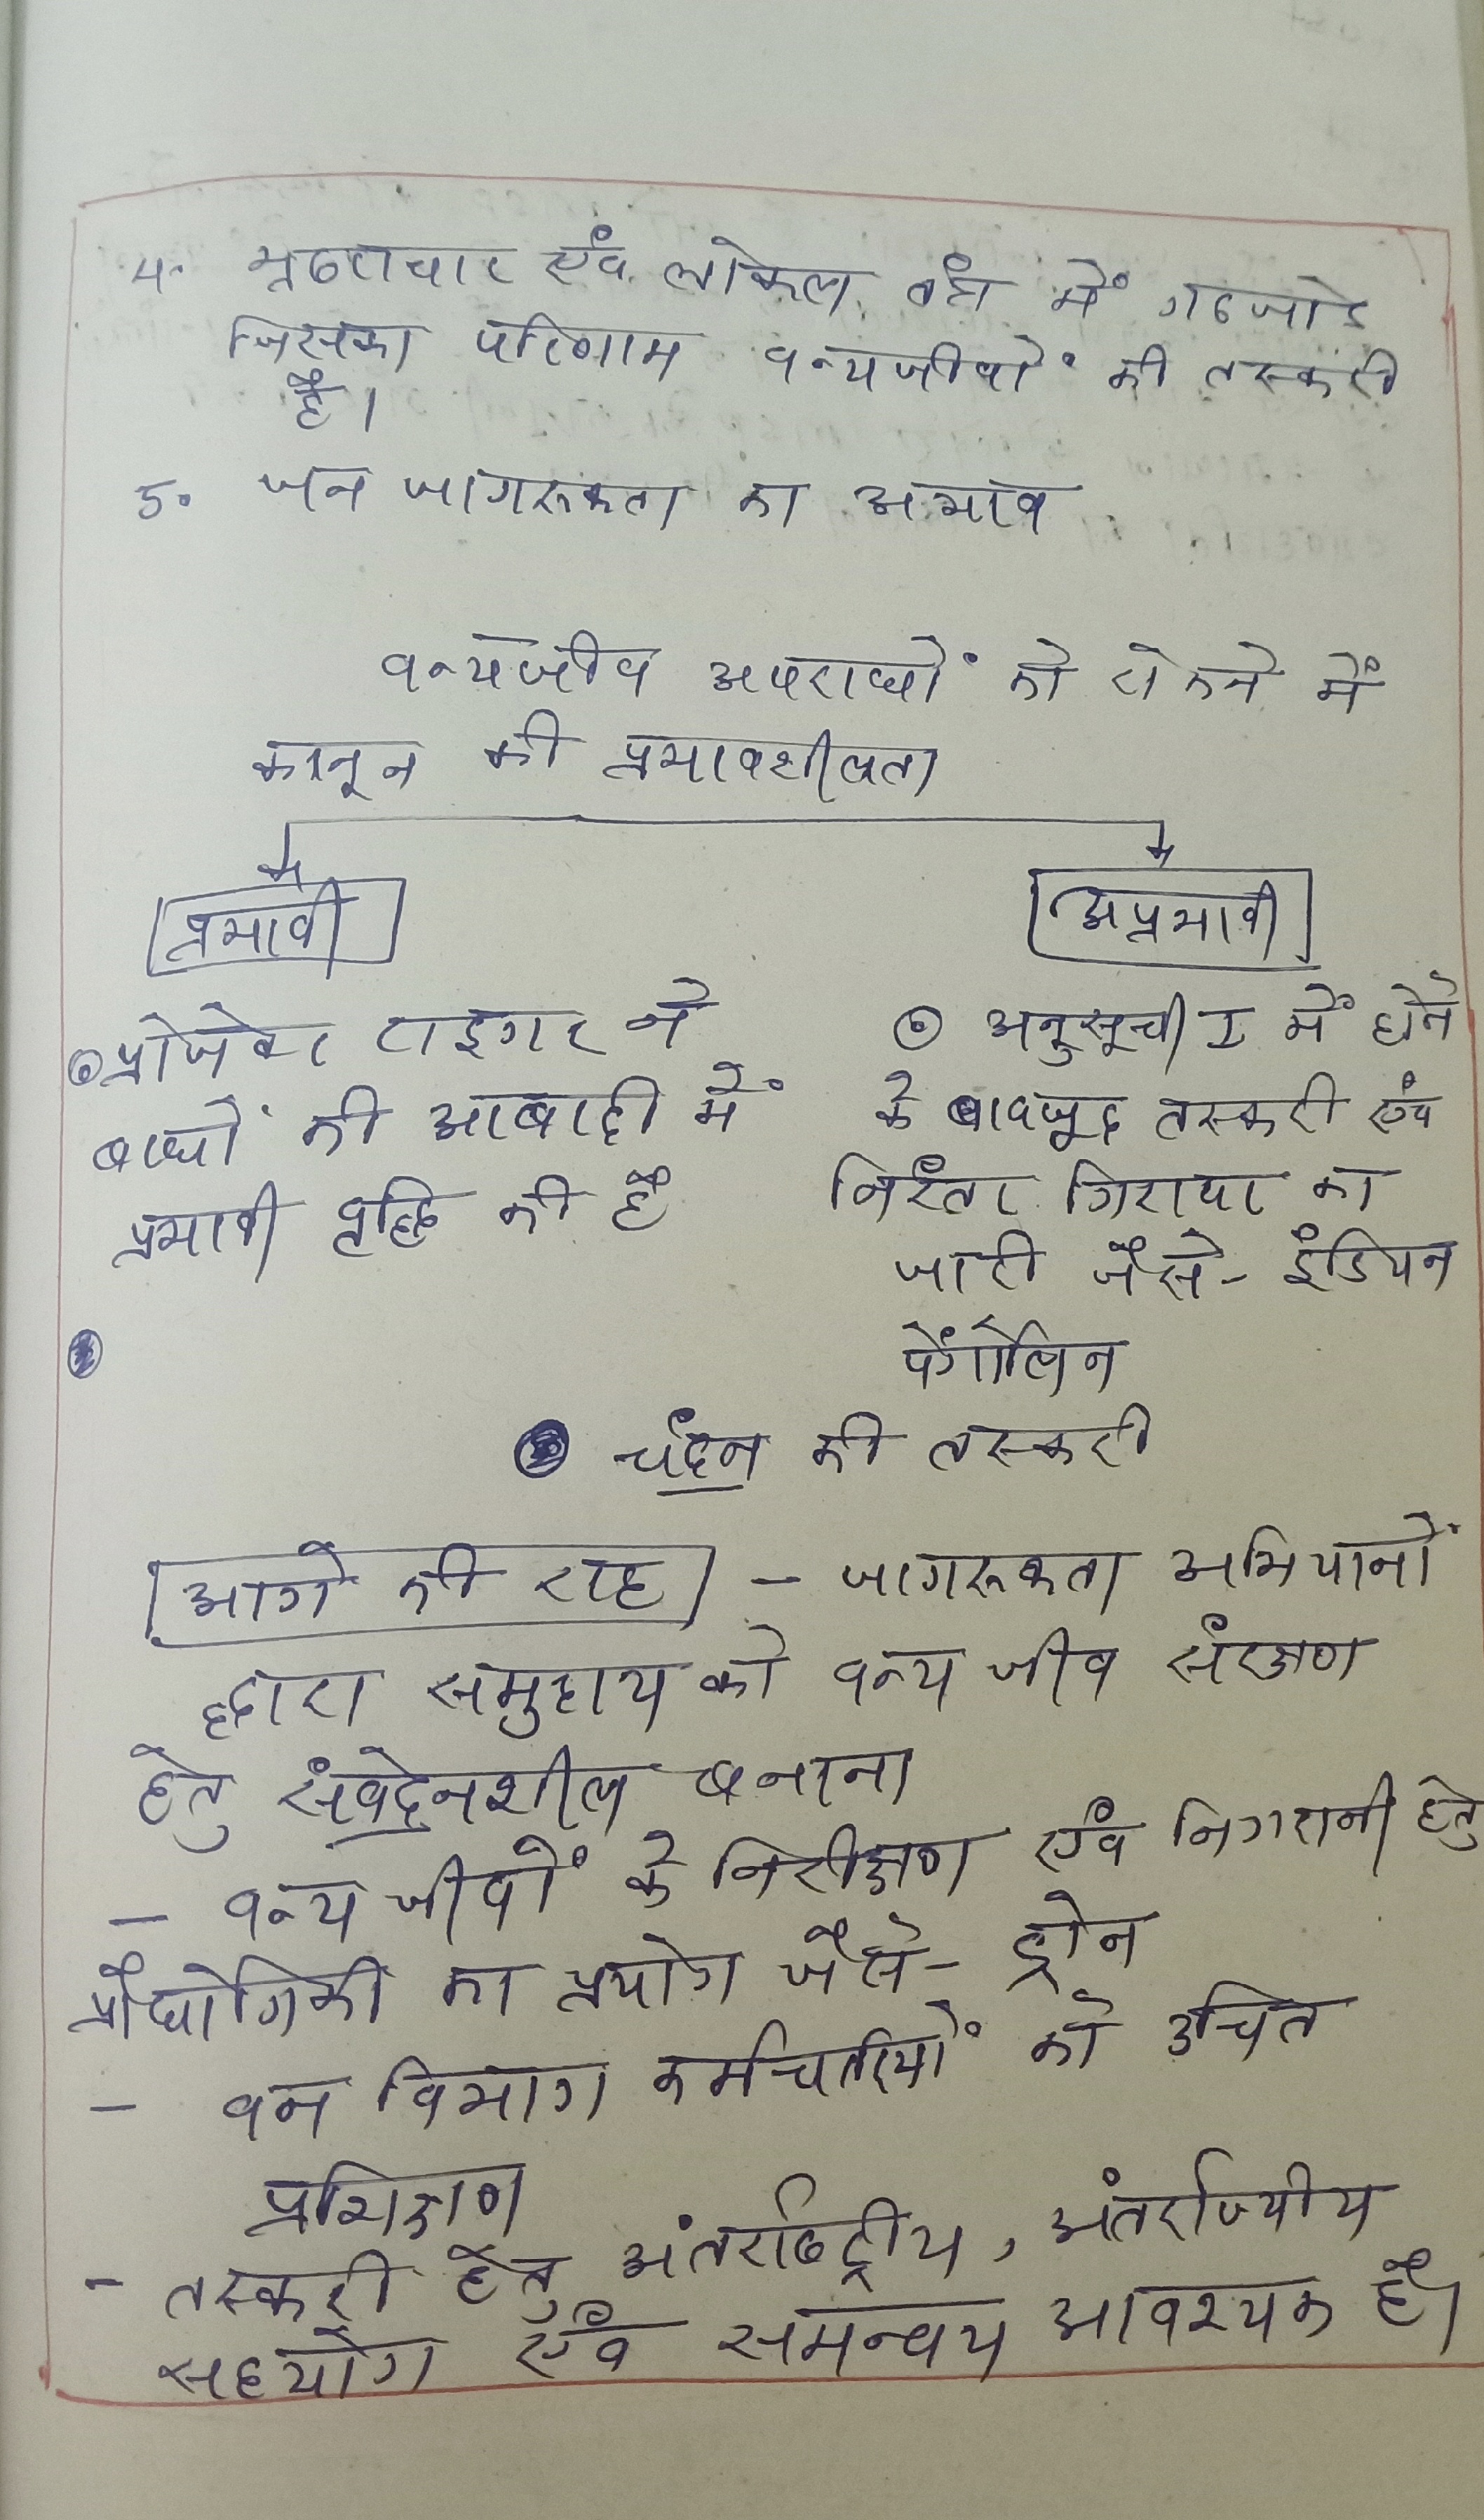 4. भ्रष्टाचार एवं लोकल तंत्र में गठजोड़
जिसका परिणाम वन्यजीवों की तस्करी
है।
5. जन जागरूकता का अभाव
वन्यजीव अपराधों को रोकने में
कानून की प्रभावशीलता
प्रभावी
अप्रभावी
प्रोजेक्ट टाइगर ने
बाघों की आबादी में
प्रभावी वृद्धि की है
अनुसूची I में होने
के बावजूद तस्करी एवं
निरंतर गिराया का
जारी जैसे- इंडियन
पेंगोलिन
चंदन की तस्करी
आगे की राह - जागरूकता अभियानों
द्वारा समुदाय को वन्य जीव संरक्षण
हेतु संवेदनशील बनाना
- वन्य जीवों के निरीक्षण एवं निगरानी हेतु
प्रौद्योगिकी का प्रयोग जैसे- ड्रोन
- वन विभाग कर्मचारियों को उचित
प्रशिक्षण
- तस्करी हेतु अंतर्राष्ट्रीय, अंतर्राज्यीय
सहयोग एवं समन्वय आवश्यक है।